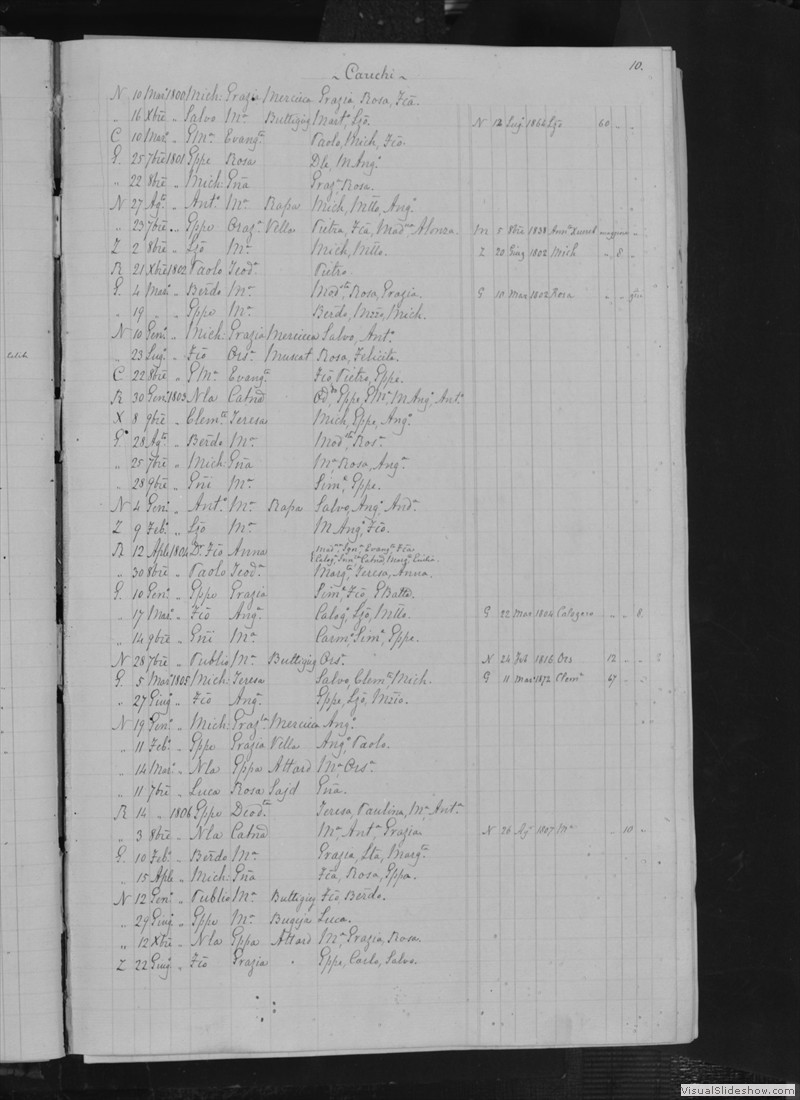 10.
~ Caruchi ~
N 10 Mar. 1800 Mich: Grazia Mercieca Grazia Rosa, Fca.
„ 16 Xbre „ Salvo Ma Buttigieg Mart. Ljo. N 12 1866 Ljo 60 „ „
C 10 Mar. „ GMa Evanga Paolo, Mich, Fco.
G. 25 7bre 1801 Gppe Rosa MAnga
„ 22 8bre „ Mich: Gña Graza Rosa.
N 27 Ag. „ Anto Ma Rapa Mich, Mtto, Ango
„ 23 7bre „ Gppe Graza Vella Pietra, Fca, Alonza. M 5 8bre 1838
Z 2 8bre „ Ljo Ma Mich, Mtto. Z 20 Giug 1802 Mich „ 8 „
R 21 Xbre 1802 Paolo Teoda Pietro
G. 4 Mar. „ Berdo Ma Rosa, Grazia. G 10 Mar 1802 Rosa
„ 19 „ „ Gppe Ma Berdo, Mich.
N 10 Gen. „ Mich: Grazia Mercieca Salvo, Anto
„ 23 Lug. „ Fco Orsa Muscat Rosa, Felicita.
C 22 8bre „ GMa Evanga Fco Pietro, Gppe.
R 30 Gen. 1803 Nla Catna Gppe, GMa, MAnga, Anto
X 8 9bre „ Clemte Teresa Mich, Gppe, Anga
G. 28 Ag. „ Berdo Ma Rosa
„ 25 7bre „ Mich: Gña Ma Rosa, Anga
„ 28 9bre „ Gñi Ma Sima, Gppe.
N 4 Gen. „ Anto Ma Rapa Salvo, Ango, Anda
Z 9 Feb. „ Ljo Ma MAnga, Fco.
R 12 Aple 1804 Dr. Fco Anna
„ 30 8bre „ Paolo Teoda Marga, Teresa, Anna.
G. 10 Gen. „ Gppe Grazia Sime, Fco, GBatta.
„ 17 Mar. „ Fco Anga Calogo, Ljo, Mtto. G 22 Mar 1804 Calogero „ „ 8.
„ 14 9bre „ Gñi Ma Carma, Sima, Gppe.
N 28 7bre „ Publio Ma Buttigieg Orsa N 24 Feb 1816 Ors 12 „ „
G. 5 Mar. 1805 Mich: Teresa Salvo, Clemte, Mich. G 11 Mar 1872 Clemte 67 „ „
„ 27 Giug „ Fco Anga Gppe, Ljo, Nzio.
N 19 Gen. „ Mich: Graza Mercieca Anga
„ 11 Feb. „ Gppe Grazia Vella Ango, Paolo.
„ 14 Mar. „ Nla Gppa Attard Ma Orsa
„ 11 7bre „ Luca Rosa Sajd Gña.
R 14 „ 1806 Gppe Diodta Teresa, Paulina, Ma Anta
„ 3 8bre „ Nla Catna Ma Anta Grazia N 26 Ag. 1807 Ma „ 10 „
G. 10 Feb. „ Berdo Ma Grazia, Marga
„ 15 Aple „ Mich: Gña Fca, Rosa, Gppa.
N 12 Gen. „ Publio Ma Buttigieg Fco, Berdo.
„ 29 Giug „ Gppe Ma Bugeja Luca.
„ 12 Xbre „ Nla Gppa Attard Ma, Grazia, Rosa.
Z 22 Giug „ Fco Grazia Gppe, Carlo, Salvo.
VisualSlideshow.com